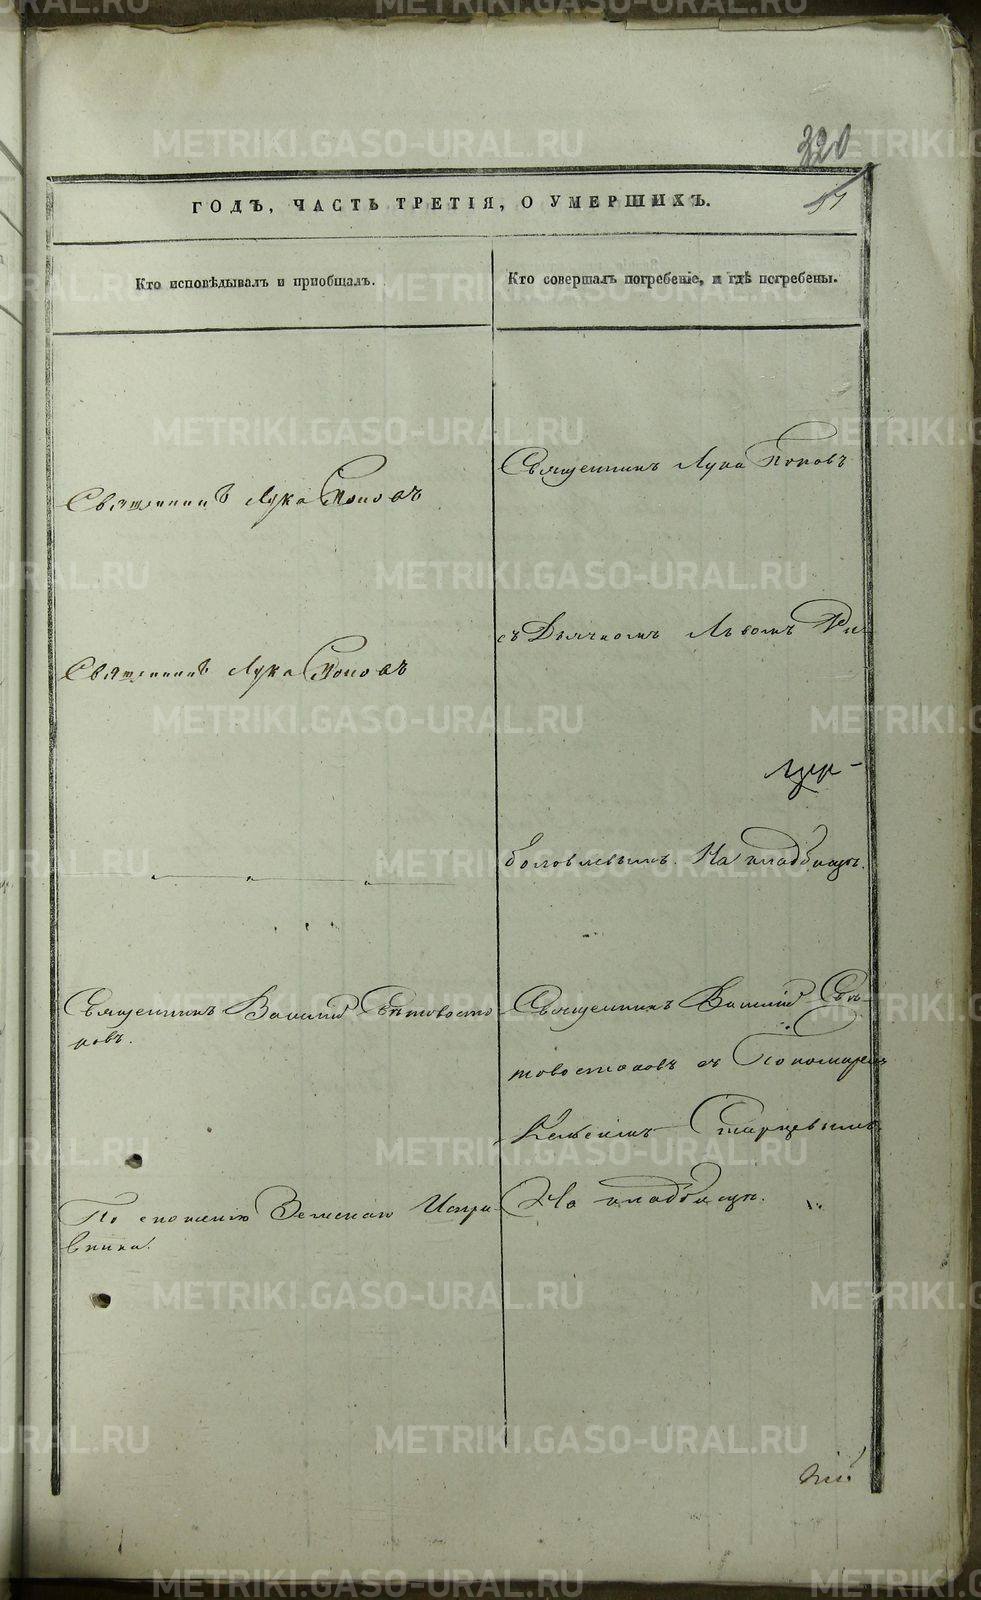 320
51
ГОДЪ, ЧАСТЬ ТРЕТІЯ, О УМЕРШИХЪ.
Кто исповѣдывалъ и пріобщалъ.
Кто совершалъ погребеніе, и гдѣ погребены.
Священникъ Лука Поповъ
Священникъ Лука Поповъ
Священникъ Василій Свѣтовосто
ковъ.
По сношенію Земскаго Испра
вника.
Священникъ Лука Поповъ
съ Дьячкомъ Львомъ
На кладбищѣ.
Священникъ Василій Свѣ
товостоковъ съ Пономаремъ
Старцевымъ
На кладбищѣ.
METRIKI.GASO-URAL.RU